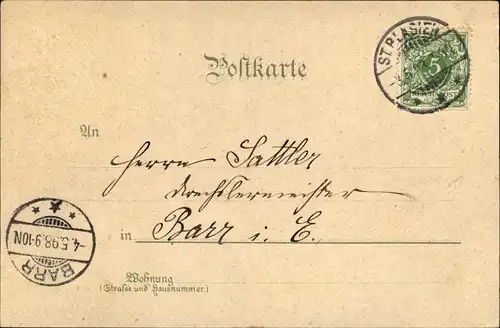 Postkarte
ST. BLASIEN
5
An
Herrn Sattler
Drechslermeister
in Barr i. E.
BARR
4.5.98.9-10N
Wohnung
(Straße und Hausnummer.)